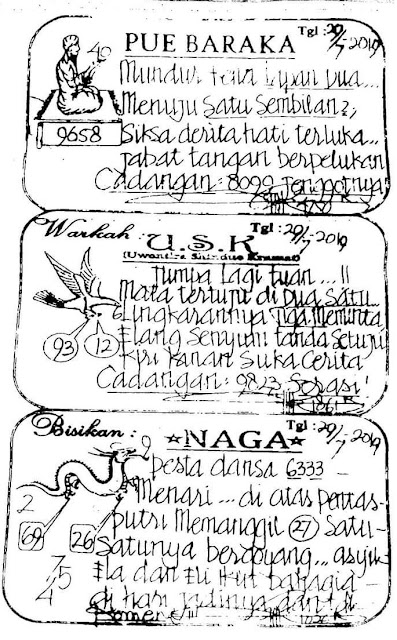 PUE BARAKA
Tgl : 29/7 2019
40
9658
Mundur tiwi lapan Dua...
Menuju Satu Sembilan
Siksa derita hati terluka...
Jabat tangan berpelukan
Cadangan : 8099 Jenggotnya
Warkah : U.S.K
Tgl : 29/7-2019
Jumpa lagi tuan...!!
Mata tertuju di Dua Satu...
Lingkarannya Tiga Meminta
93 12
Elang Senyum tanda Setuju
Kiri Kanan Suka Cerita
Cadangan : 9823 Serasi!
Bisikan : NAGA
Tgl : 29/7 2019
9
Pesta dansa 6333
Menari... di atas pentas
2
Putri Memanggil 27 Satu-
69 26
Satunya bergoyang... asyik
7
5
4
Ela dan Eli ikut bahagia
di hari jadinya